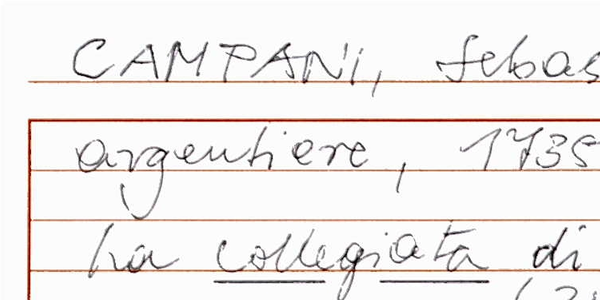 CAMPANI, Sebas
argentiere, 1735
La collegiata di